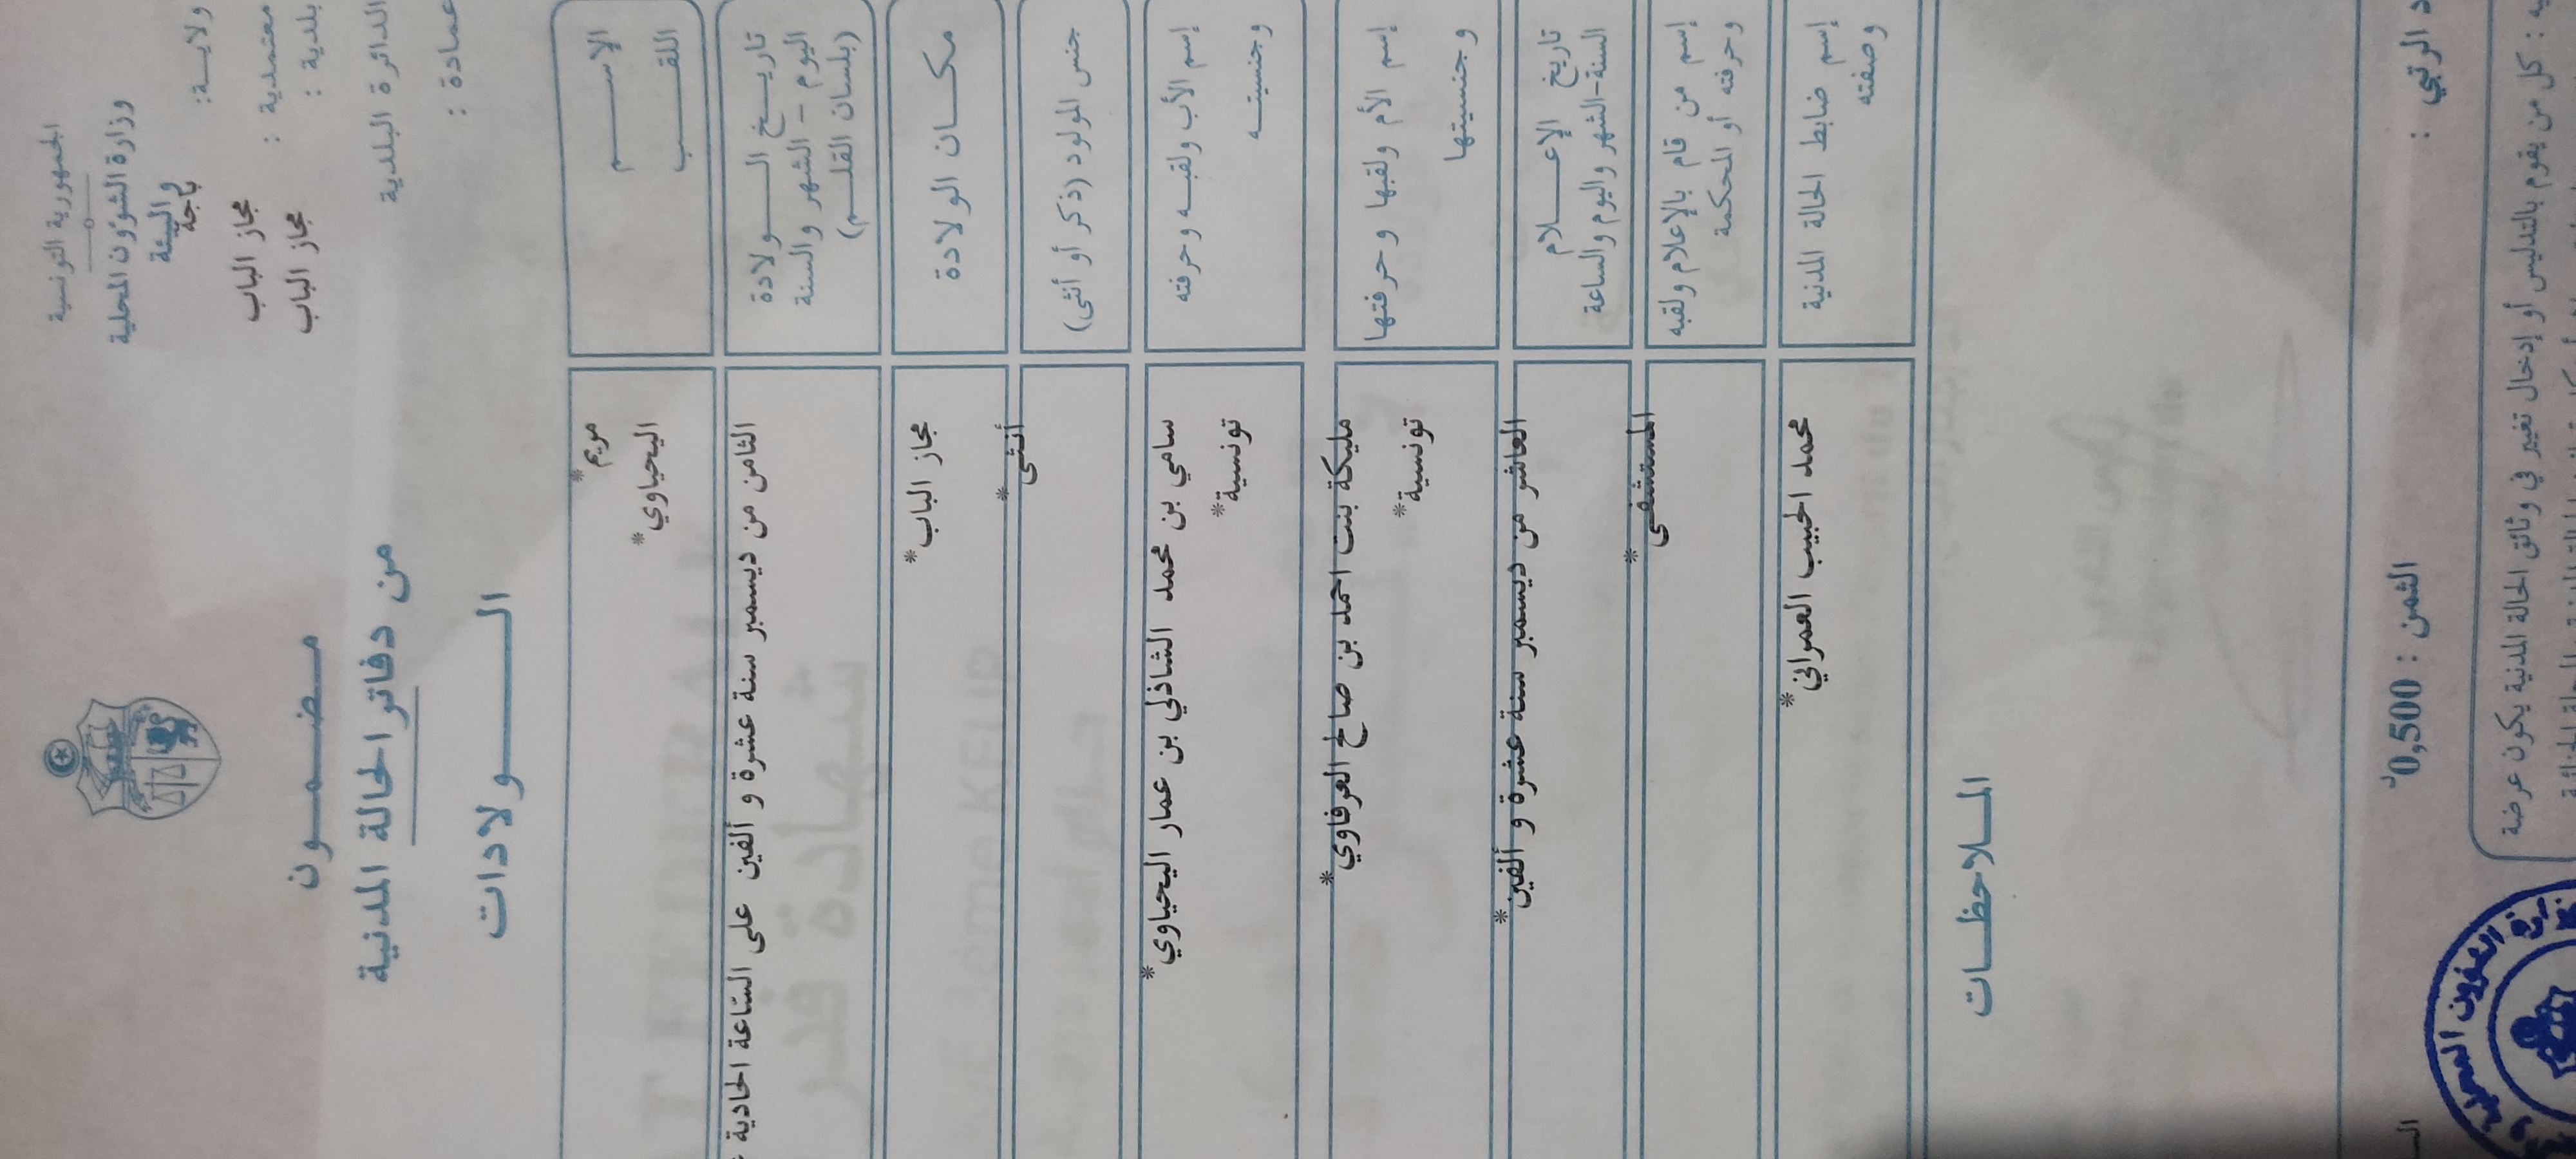 الجمهورية التونسية
وزارة الشؤون المحلية
والبيئة
ولايـــة: باجة
معتمدية : مجاز الباب
بلدية : مجاز الباب
الدائرة البلدية
عمادة :
مـضـمـون
من دفاتر الحالة المدنية
الـــولادات
الإســـم
اللقـــب
مريم*
اليحياوي*
تاريـخ الـــولادة
اليوم – الشهر والسنة
(بلسان القلـــم)
الثامن من ديسمبر سنة عشرة و ألفين على الساعة الحادية
مكـــان الولادة
مجاز الباب*
جنس المولود (ذكر أو أنثى)
أنثى*
إسم الأب ولقبـه وحرفته
وجنسيتـــه
سامي بن محمد الشاذلي بن عمار اليحياوي*
تونسية*
إسم الأم ولقبها وحرفتها
وجنسيتها
مليكة بنت احمد بن صالح العرفاوي*
تونسية*
تاريخ الإعـــلام
السنة-الشهر واليوم والساعة
العاشر من ديسمبر سنة عشرة و ألفين*
إسم من قام بالإعلام ولقبه
وحرفته أو المحكمة
المستشفى*
إسم ضابط الحالة المدنية
وصفته
محمد الحبيب العمراني*
المـلاحظـات
د الرتبي :
الثمن : 0,500د
يه : كل من يقوم بالتدليس أو إدخال تغيير في وثائق الحالة المدنية يكون عرضة